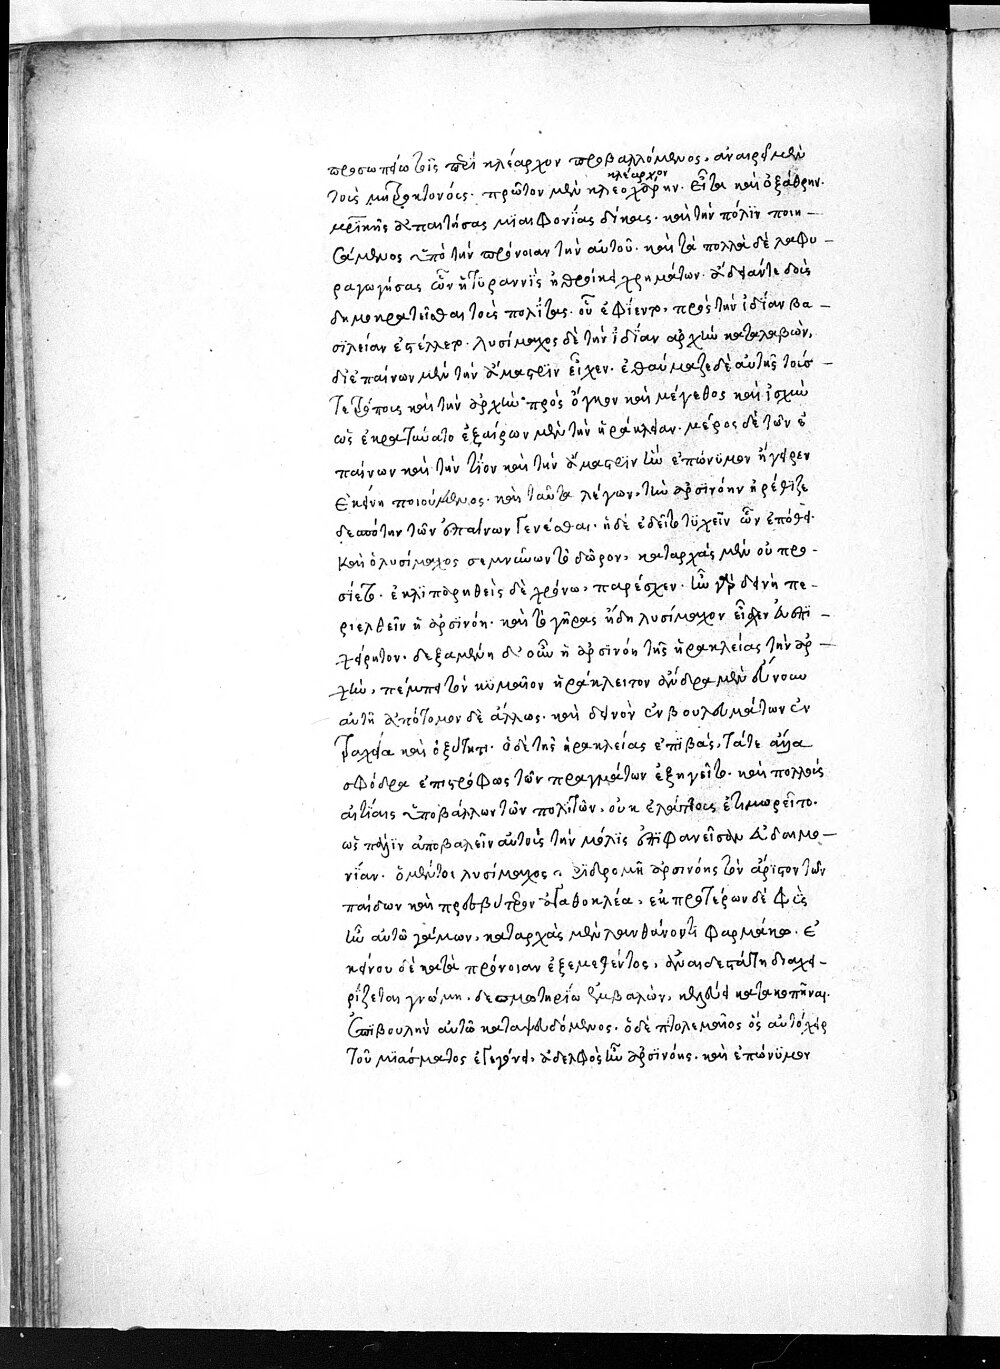 προσωπείω τοῖς περὶ κλέαρχον προβαλλόμενος, ἀναιρεῖ μὲν
κλέαρχον
τοὺς μητροκτόνους. πρῶτον μὲν κλεοχάρην. εἶτα καὶ ὀξάθρην.
μητρικῆς ἀπαιτήσας μιαιφονίας δίκας. καὶ τὴν πόλιν ποιη-
σάμενος ὑπὸ τὴν πρόνοιαν τὴν αὐτοῦ. καὶ τὰ πολλὰ δὲ λαφυ-
ραγωγήσας ὧν ἡ τυραννὶς ἠθροίκει χρημάτων. ἄδειάν τε δοὺς
δημοκρατεῖσθαι τοὺς πολίτας. οὗ ἐφίεντο, πρὸς τὴν ἰδίαν βα-
σιλείαν ἐστέλλετο. λυσίμαχος δὲ τὴν ἰδίαν ἀρχὴν καταλαβὼν,
δι' ἐπαίνων μὲν τὴν ἄμαστριν εἶχεν. ἐθαύμαζε δὲ αὐτῆς τούς
τε τρόπους καὶ τὴν ἀρχὴν πρὸς ὄγκον καὶ μέγεθος καὶ ἰσχὺν
ὡς ἐκρατύνατο ἐξαίρων μὲν τὴν ἡράκλειαν. μέρος δὲ τῶν ἐ
παίνων καὶ τὴν τίον καὶ τὴν ἄμαστριν ἣν ἐπώνυμον ἤγειρεν
ἐκείνη ποιούμενος. καὶ ταῦτα λέγων, τὴν ἀρσινόην ἠρέθιζε
δεσπότην τῶν ἐπαίνων γενέσθαι. ἡ δὲ ἐδεῖτο τυχεῖν ὧν ἐπόθει.
καὶ ὁ λυσίμαχος σεμνύνων τὸ δῶρον, καταρχὰς μὲν οὐ προ-
σίετο. ἐκλιπαρηθεὶς δὲ χρόνω, παρέσχεν. ἦν γὰρ δεινὴ πε-
ριελθεῖν ἡ ἀρσινόη. καὶ τὸ γῆρας ἤδη λυσίμαχον εἶχεν εὐεπι-
χείρητον. δεξαμένη δ' οὖν ἡ ἀρσινόη τῆς ἡρακλείας τὴν ἀρ-
χὴν, πέμπει τὸν κυμαῖον ἡράκλειτον ἄνδρα μὲν εὔνουν
αὐτῆ ἀπότομον δὲ ἄλλως. καὶ δεινὸν ἐν βουλευμάτων ἐν
τραχεία καὶ ὀξύτητι. ὁ δὲ τῆς ἡρακλείας ἐπιβὰς, τά τε ἄλλα
σφόδρα ἐπιστρόφως τῶν πραγμάτων ἐξηγεῖτο. καὶ πολλοὺς
αἰτίαις ὑποβάλλων τῶν πολιτῶν, οὐκ ἐλάττους ἐτιμωρεῖτο.
ὡς πάλιν ἀποβαλεῖν αὐτοὺς τὴν μόλις ἐπιφανεῖσαν εὐδαιμο-
νίαν. ὁ μέντοι λυσίμαχος, ἐπιδρομῆ ἀρσινόης τὸν ἄριστον τῶν
παίδων καὶ πρεσβύτερον ἀγαθοκλέα, ἐκ προτέρων δὲ φὺς
ἦν αὐτῶ γάμων, καταρχὰς μὲν λανθάνοντι φαρμάκω. ἐ
κείνου δὲ κατὰ πρόνοιαν ἐξεμεθέντος, ἀναιδεστάτη διαχει-
ρίζεται γνώμη. δεσμωτηρίω ἐμβαλὼν, κελεύει κατακοπῆναι.
ἐπιβουλὴν αὐτῶ καταψευδόμενος. ὁ δὲ πτολεμαῖος ὃς αὐτόχειρ
τοῦ μιάσματος ἐγεγόνει, ἀδελφὸς ἦν ἀρσινόης. καὶ ἐπώνυμον